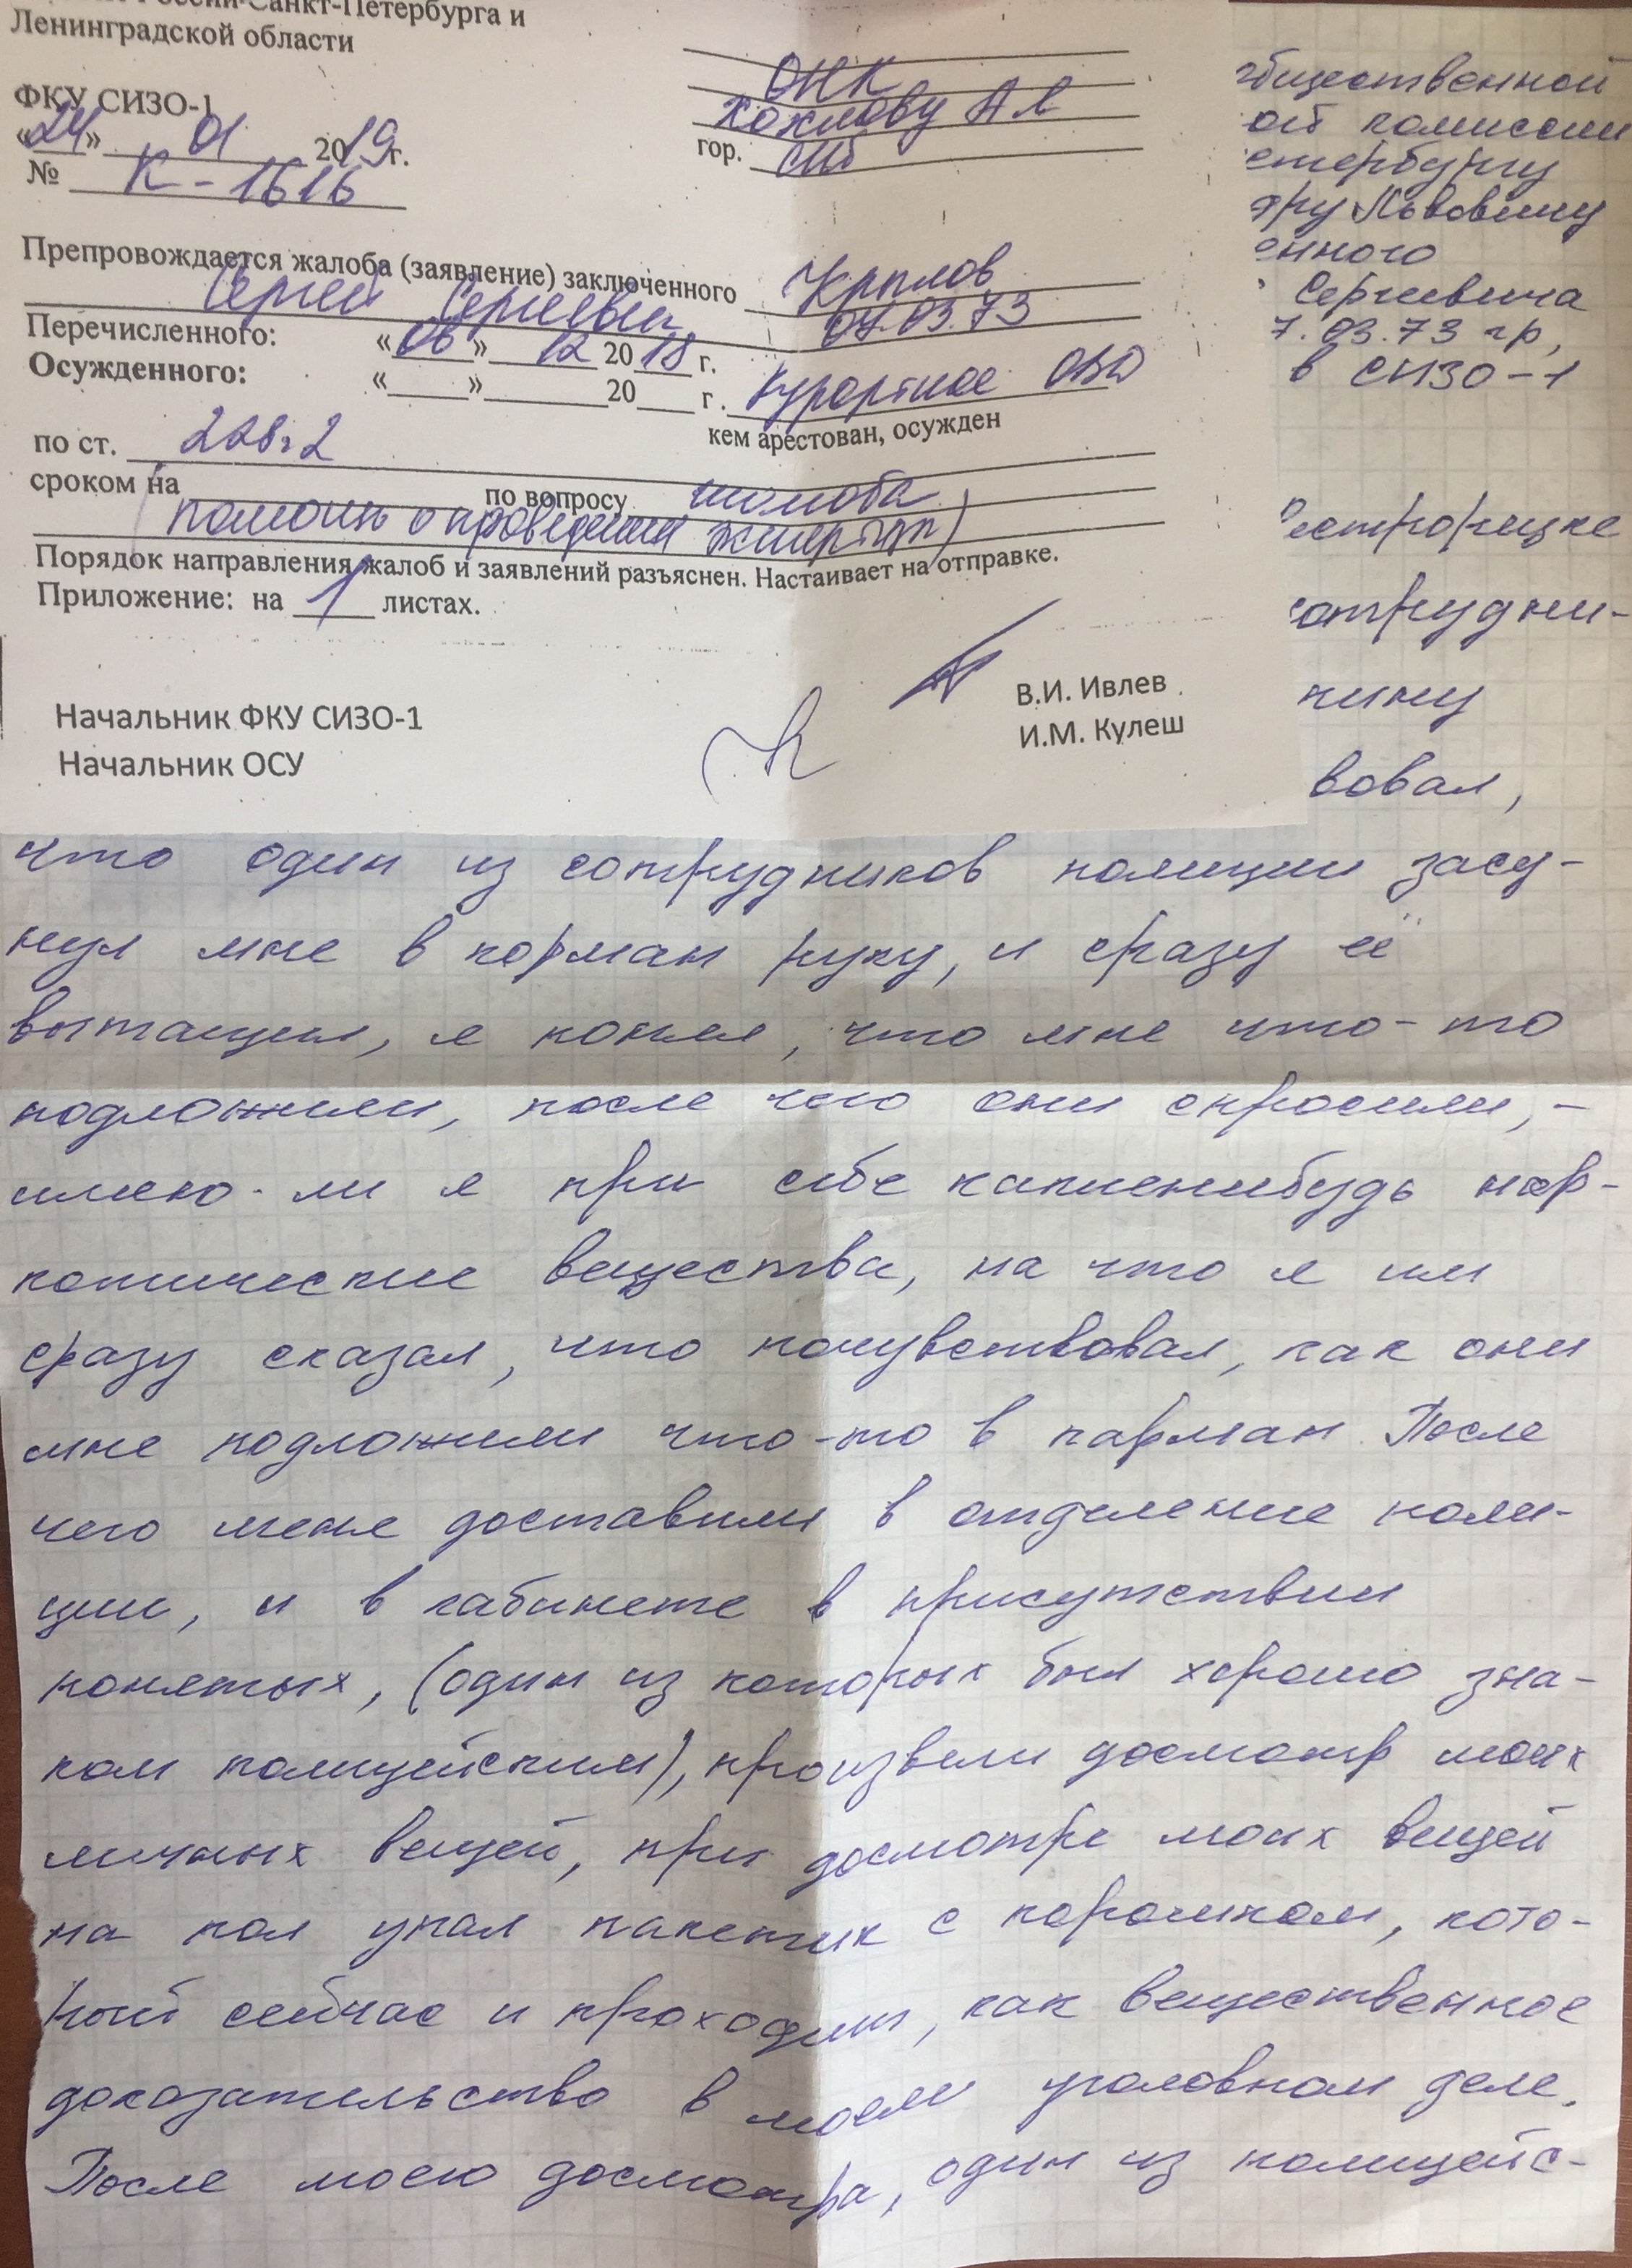 России Санкт-Петербурга и
Ленинградской области
ФКУ СИЗО-1
«24» 01 2019г.
№ К-1616
ОНК
Хохлову А Л
гор. СПб
Препровождается жалоба (заявление) заключенного Крылов
Сергей Сергеевич 07.03.73
Перечисленного: «06» 12 2018 г.
Осужденного: «____» ______ 20___ г. Курортное ОВД
кем арестован, осужден
по ст. 228ч2
сроком на по вопросу жалоба
(помощь о проведении экспертизы)
Порядок направления жалоб и заявлений разъяснен. Настаивает на отправке.
Приложение: на 1 листах.
Начальник ФКУ СИЗО-1 В.И. Ивлев
Начальник ОСУ И.М. Кулеш
общественной
ой комиссии
етербургу
дру Львовичу
енного
Сергеевича
7.03.73 гр,
в СИЗО-1
естрорецке
сотрудни-
вовал,
что один из сотрудников полиции засу-
нул мне в корман руку, и сразу её
вытащил, я понял, что мне что-то
подложили, после чего они спросили, -
имею-ли я при себе какиенибудь нар-
котические вещества, на что я им
сразу сказал, что почувствовал, как они
мне подложили что-то в карман. После
чего меня доставили в отделение поли-
ции, и в кабинете в присутствии
понятых, (один из которых был хорошо зна-
ком полицейским), произвели досмотр моих
личных вещей, при досмотре моих вещей
на пол упал пакетик с порошком, кото-
рый сейчас и проходит, как вещественное
доказательство в моём уголовном деле.
После моего досмотра, один из полицейс-